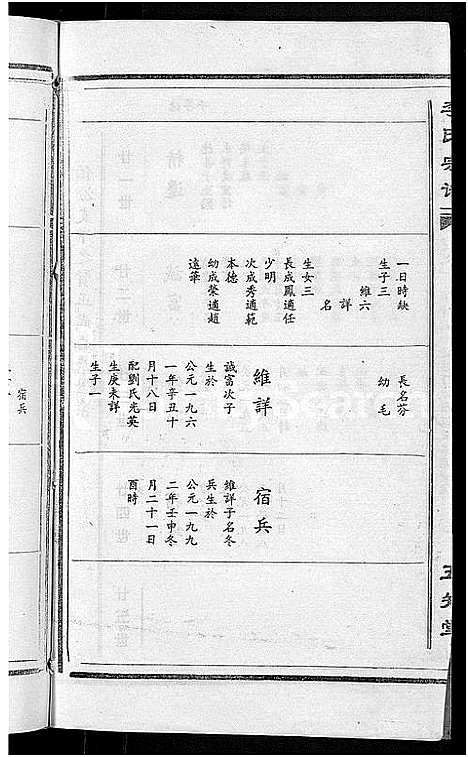 李氏宗譜
一日時缺
生子三
維六
詳
名
生女三
長成鳳適任
少明
次成秀適範
本德
幼成榮適趙
遠華
長名芬
幼毛
維詳
誠富次子
生於
公元一九六
一年辛丑十
月十八日
配劉氏光英
生庚未詳
生子一
宿兵
維詳子名冬
兵生於
公元一九九
二年壬申冬
月二十一日
酉時
宿兵